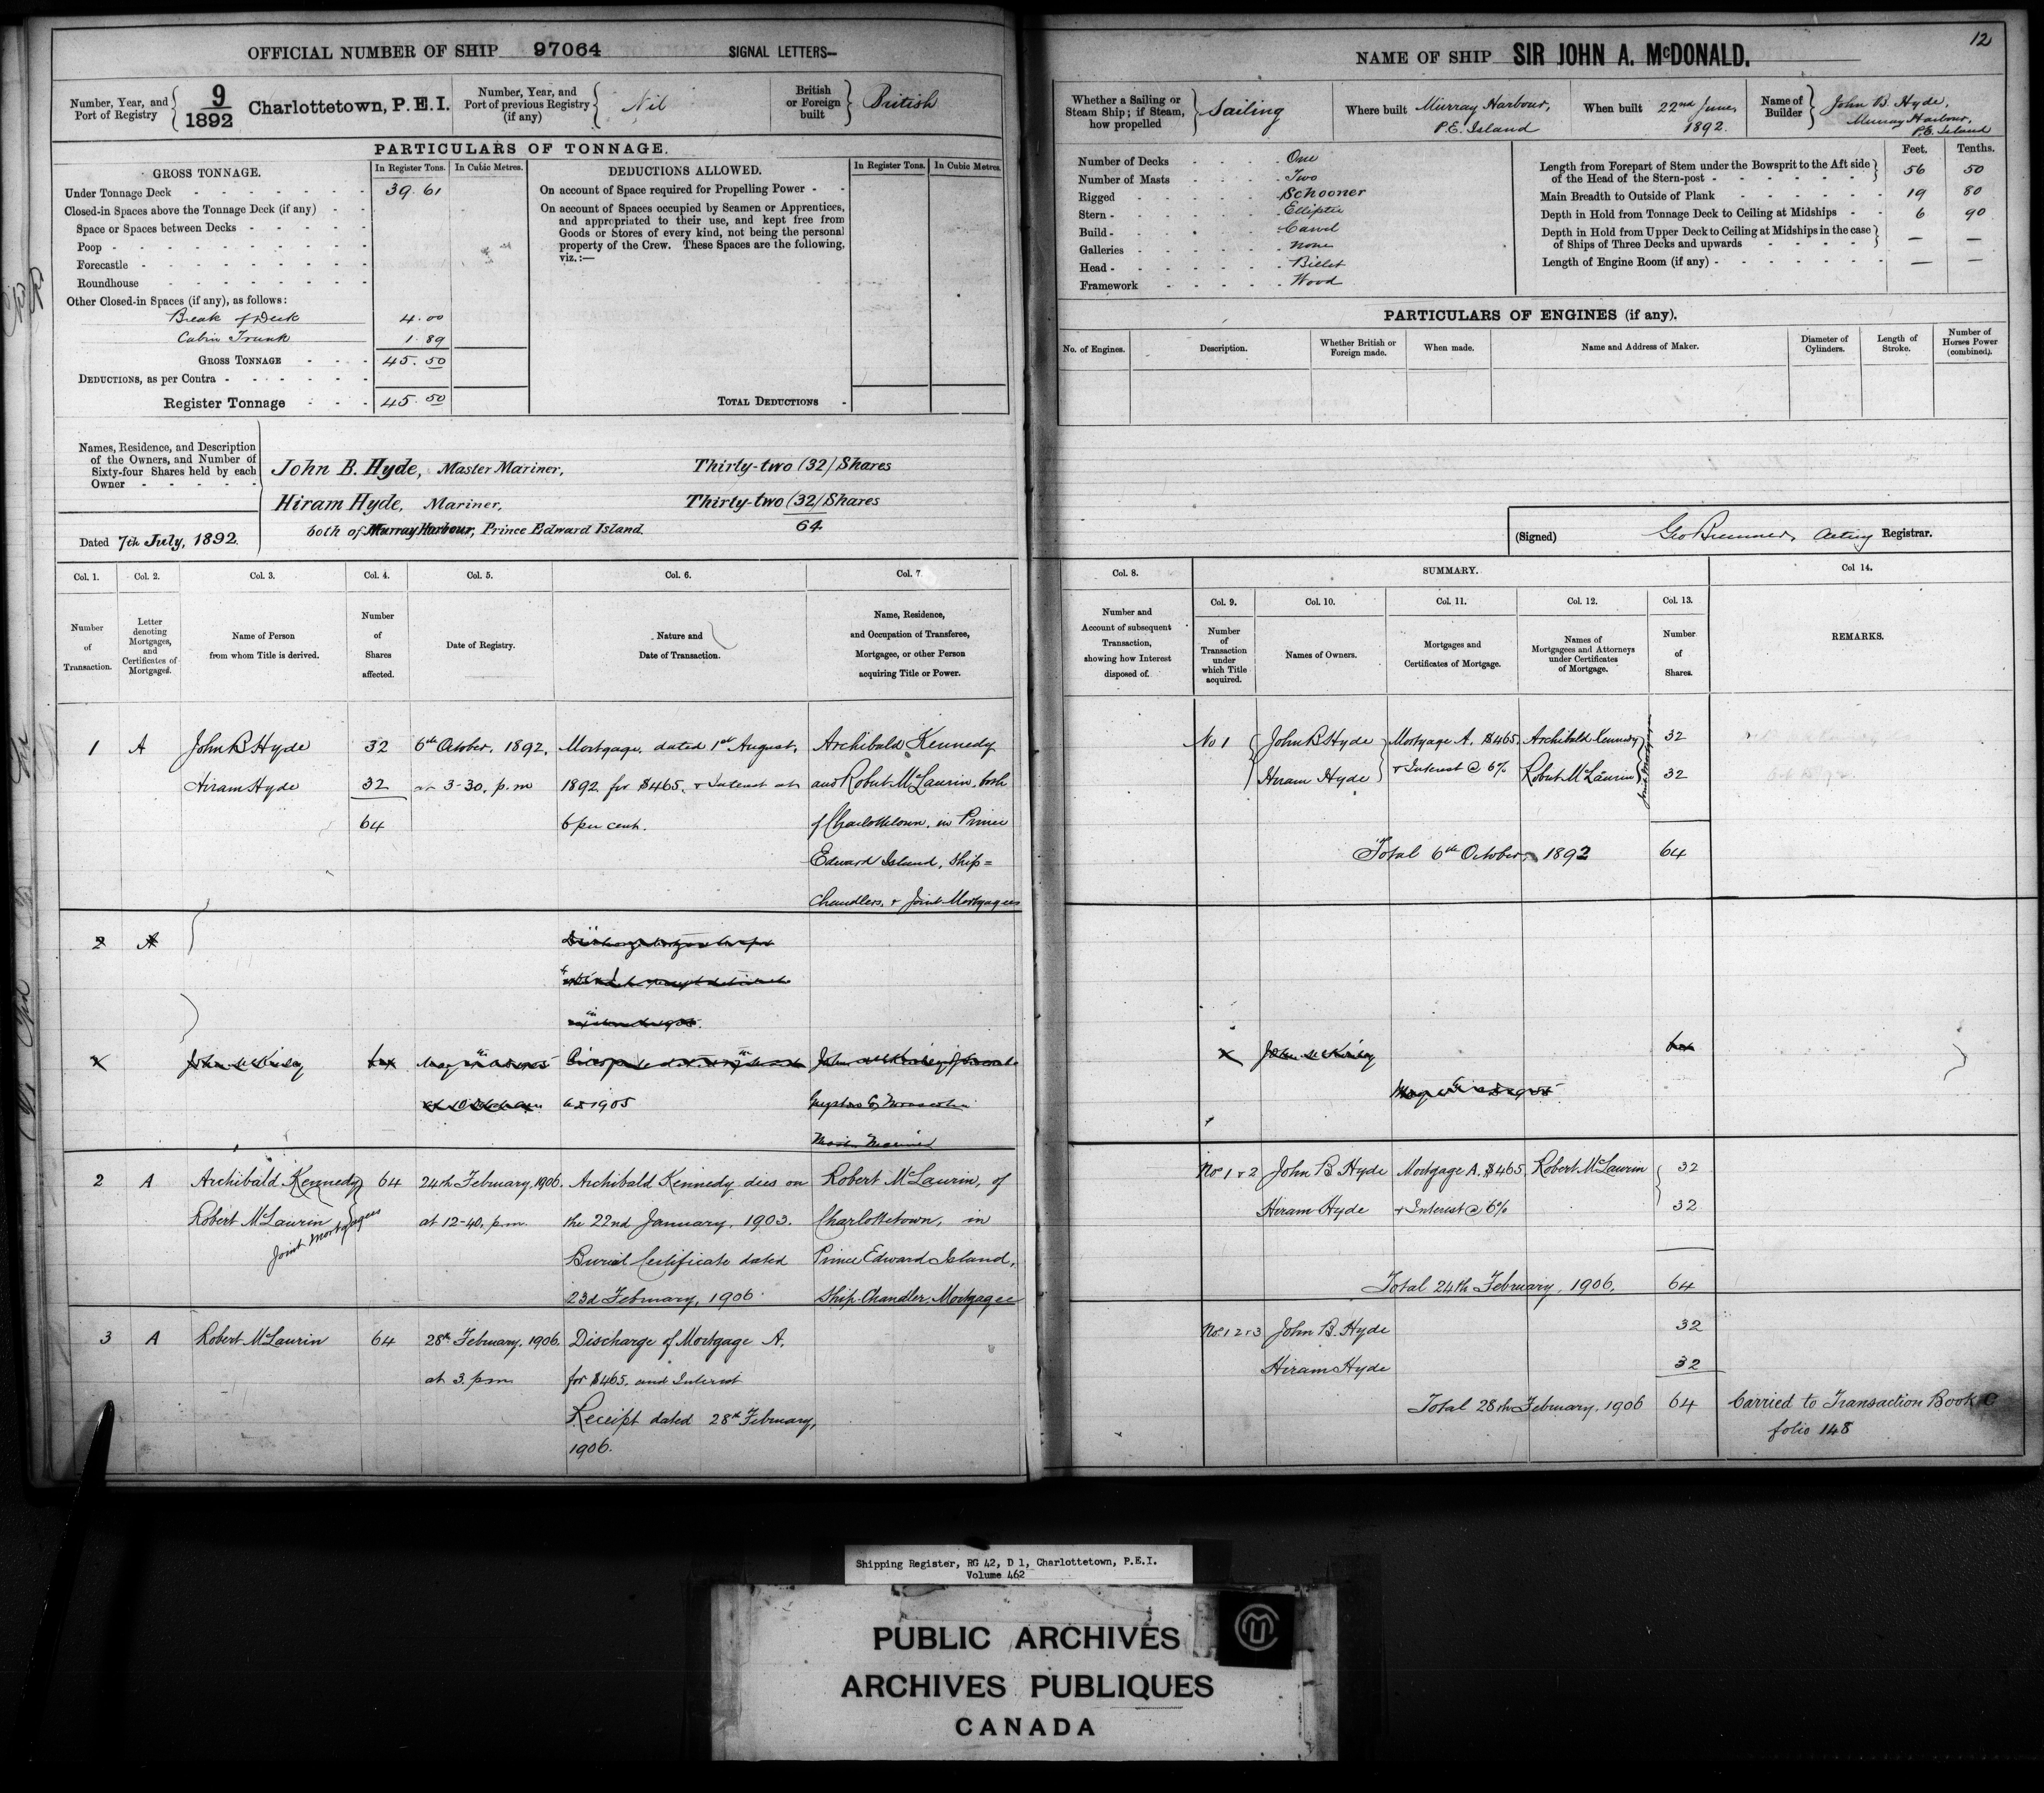 12
OFFICIAL NUMBER OF SHIP 97064 SIGNAL LETTERS—
Number, Year, and Port of Registry 9/1892 Charlottetown, P.E.I.
Number, Year, and Port of previous Registry (if any) Nil
British or Foreign built British
PARTICULARS OF TONNAGE.
GROSS TONNAGE. In Register Tons. In Cubic Metres.
Under Tonnage Deck 39.61
Closed-in Spaces above the Tonnage Deck (if any)
Space or Spaces between Decks
Poop
Forecastle
Roundhouse
Other Closed-in Spaces (if any), as follows:
Break of Deck 4.00
Cabin Trunk 1.89
GROSS TONNAGE 45.50
DEDUCTIONS, as per Contra
Register Tonnage 45.50
DEDUCTIONS ALLOWED. In Register Tons. In Cubic Metres.
On account of Space required for Propelling Power
On account of Spaces occupied by Seamen or Apprentices,
and appropriated to their use, and kept free from
Goods or Stores of every kind, not being the personal
property of the Crew. These Spaces are the following,
viz.:—
TOTAL DEDUCTIONS
Names, Residence, and Description
of the Owners, and Number of
Sixty-four Shares held by each
Owner
John B. Hyde, Master Mariner, Thirty-two (32) Shares
Hiram Hyde, Mariner, Thirty-two (32) Shares
both of Murray Harbour, Prince Edward Island. 64
Dated 7th July, 1892.
Col. 1. Col. 2. Col. 3. Col. 4. Col. 5. Col. 6. Col. 7.
Number of Transaction.
Letter denoting Mortgages, and Certificates of Mortgages.
Name of Person from whom Title is derived.
Number of Shares affected.
Date of Registry.
Nature and Date of Transaction.
Name, Residence, and Occupation of Transferee, Mortgagee, or other Person acquiring Title or Power.
1 A John B Hyde 32 6th October, 1892, Mortgage, dated 1st August, Archibald Kennedy
Hiram Hyde 32 at 3-30. p.m 1892 for $465. & Interest at and Robert McLaurin, both
64 6 per cent. of Charlottetown, in Prince
Edward Island, Ship=
Chandlers, & Joint Mortgagees
2 A
John McKinlay
A.D 1905
2 A Archibald Kennedy 64 24th February, 1906. Archibald Kennedy dies on Robert McLaurin, of
Robert McLaurin at 12-40. p.m. the 22nd January, 1903. Charlottetown, in
Joint Mortgagees Burial Certificate dated Prince Edward Island,
23d February, 1906. Ship-Chandler, Mortgagee
3 A Robert McLaurin 64 28th February, 1906. Discharge of Mortgage A.
at 3. p.m for $465. and Interest
Receipt dated 28th February,
1906.
NAME OF SHIP SIR JOHN A. McDONALD.
Whether a Sailing or Steam Ship; if Steam, how propelled Sailing
Where built Murray Harbour, P.E. Island
When built 22nd June, 1892.
Name of Builder John B. Hyde, Murray Harbour, P.E. Island
Number of Decks One
Number of Masts Two
Rigged Schooner
Stern Elliptic
Build Carvel
Galleries None
Head Billet
Framework Wood
Feet. Tenths.
Length from Forepart of Stem under the Bowsprit to the Aft side
of the Head of the Stern-post 56 50
Main Breadth to Outside of Plank 19 80
Depth in Hold from Tonnage Deck to Ceiling at Midships 6 90
Depth in Hold from Upper Deck to Ceiling at Midships in the case
of Ships of Three Decks and upwards — —
Length of Engine Room (if any) — —
PARTICULARS OF ENGINES (if any).
No. of Engines. Description. Whether British or Foreign made. When made. Name and Address of Maker. Diameter of Cylinders. Length of Stroke. Number of Horses Power (combined).
(Signed) Geo Bremner, Acting Registrar.
Col. 8. SUMMARY. Col 14.
Col. 9. Col. 10. Col. 11. Col. 12. Col. 13.
Number and Account of subsequent Transaction, showing how Interest disposed of.
Number of Transaction under which Title acquired.
Names of Owners.
Mortgages and Certificates of Mortgage.
Names of Mortgagees and Attorneys under Certificates of Mortgage.
Number of Shares.
REMARKS.
No 1 John B Hyde Mortgage A. $465. Archibald Kennedy 32
Hiram Hyde & Interest @ 6% Robert McLaurin 32
Joint Mortgagees
Total 6th October, 1892 64
John McKinlay
Nos 1 & 2 John B Hyde Mortgage A. $465 Robert McLaurin 32
Hiram Hyde & Interest @ 6% 32
Total 24th February, 1906. 64
Nos 1 2 & 3 John B. Hyde 32
Hiram Hyde 32
Total 28th February, 1906 64 Carried to Transaction Book C
folio 148
Shipping Register, RG 42, D 1, Charlottetown, P.E.I.
Volume 462
PUBLIC ARCHIVES
ARCHIVES PUBLIQUES
CANADA